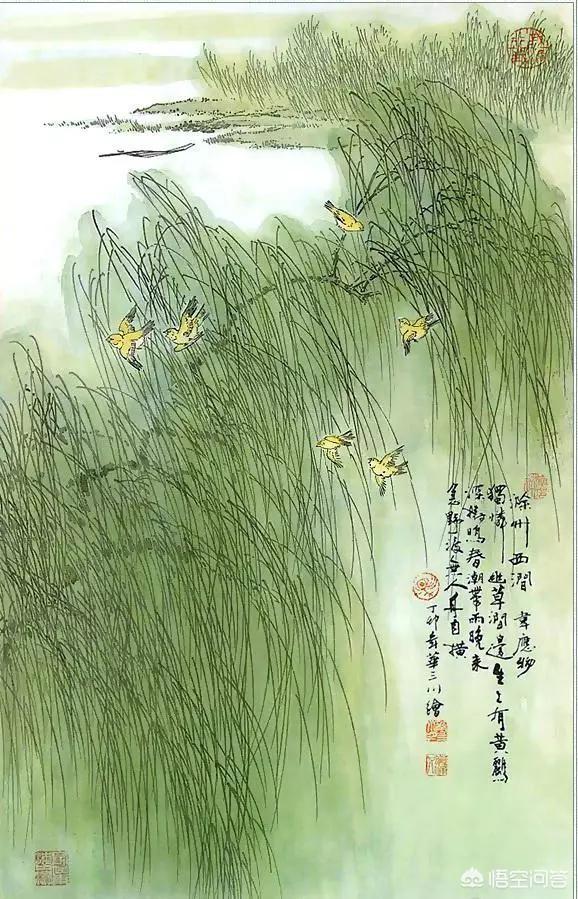 滁州西澗 韋應物
獨憐幽草澗邊生上有黃鸝
深樹鳴春潮帶雨晚來
急野渡無人舟自橫
丁卯年華三川繪
悟空问答